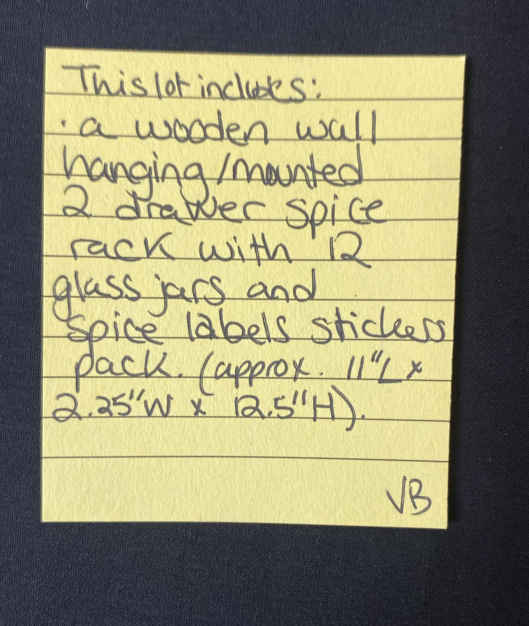 This lot includes:
· a wooden wall
hanging/mounted
2 drawer spice
rack with 12
glass jars and
spice labels stickers
pack. (approx. 11"L x
2.25"W x 12.5"H).
VB